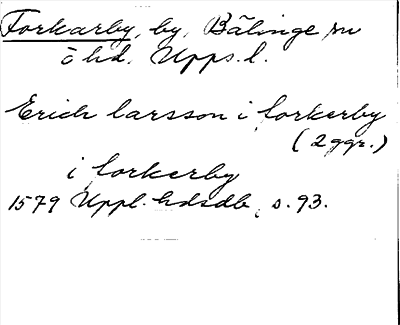 Forkarby, by, Bälinge sn
ö hd. Upps. l.
Erich larsson i forkerby
(2 ggr.)
i forkerby
1579 Uppl. hdsdb, s. 93.